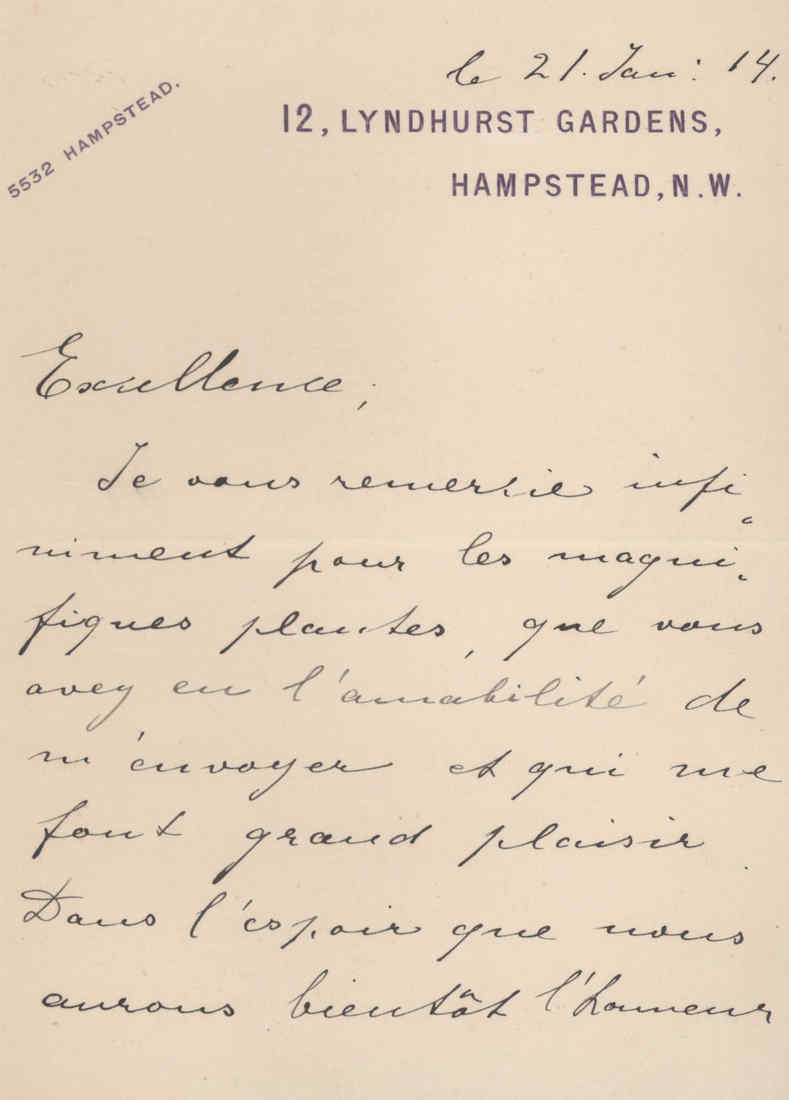 le 21. Jan: 14.
5532 HAMPSTEAD.
12, LYNDHURST GARDENS,
HAMPSTEAD, N.W.
Excellence,
Je vous remercie infi-
niment pour les magni-
fiques plantes, que vous
avez eu l'amabilité de
m'envoyer et qui me
font grand plaisir.
Dans l'espoir que nous
aurons bientôt l'honneur